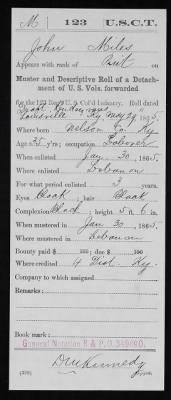 M | 123 | U.S.C.T.
John Miles
Appears with rank of Pvt on
Muster and Descriptive Roll of a Detachment of U. S. Vols. forwarded
for the 123 Reg't U. S. Col'd Infantry. Roll dated
Louisville Ky May 29, 1865.
Where born Nelson Co Ky
Age 35 y'rs; occupation Laborer
When enlisted Jan. 30, 1865.
Where enlisted Lebanon
For what period enlisted 3 years.
Eyes Black; hair Black
Complexion Black; height 5 ft. 6 in.
When mustered in Jan 30, 1865.
Where mustered in Lebanon
Bounty paid $ 100; due $ 100
Where credited 4 Dist. Ky.
Company to which assigned
Remarks:
Book mark:
General Notation R & P.O.
D W Kennedy
(339) Copyist.